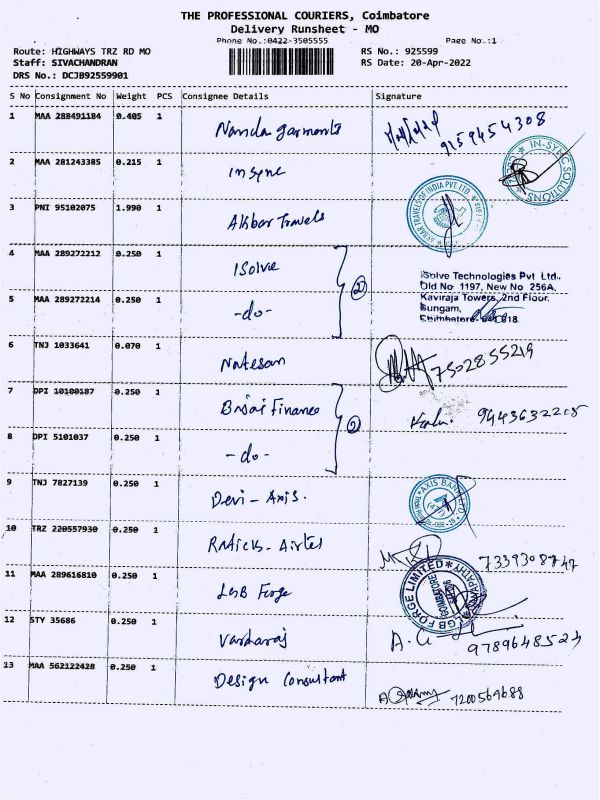 THE PROFESSIONAL COURIERS, Coimbatore
Delivery Runsheet - MO
Phone No.:0422-3505555 Page No.:1
Route: HIGHWAYS TRZ RD MO RS No.: 925599
Staff: SIVACHANDRAN RS Date: 20-Apr-2022
DRS No.: DCJB92559901
S No Consignment No Weight PCS Consignee Details Signature
1 MAA 288491184 0.405 1 Nanda garments 9159454308
2 MAA 281243385 0.215 1 insync IN-SYNC SOLUTIONS
3 PNI 95102075 1.990 1 Akbar Travels AKBAR TRAVELS OF INDIA PVT. LTD.
4 MAA 289272212 0.250 1 iSolve
iSolve Technologies Pvt Ltd.,
Old No 1197, New No 256A,
Kaviraja Towers, 2nd Floor,
Sungam,
5 MAA 289272214 0.250 1 -do- (2)
6 TNJ 1033641 0.070 1 Natesan 7502855219
7 DPI 10100187 0.250 1 Bajaj Finance 9443632205
8 DPI 5101037 0.250 1 -do- (2)
9 TNJ 7827139 0.250 1 Devi - Axis. AXIS BANK LTD
10 TRZ 220557930 0.250 1 Airtel 7339308747
11 MAA 289616810 0.250 1 LGB Forge LGB FORGE LIMITED
12 STY 35686 0.250 1 Vardaraj 9789648524
13 MAA 562122428 0.250 1 Design Consultant 7200569688